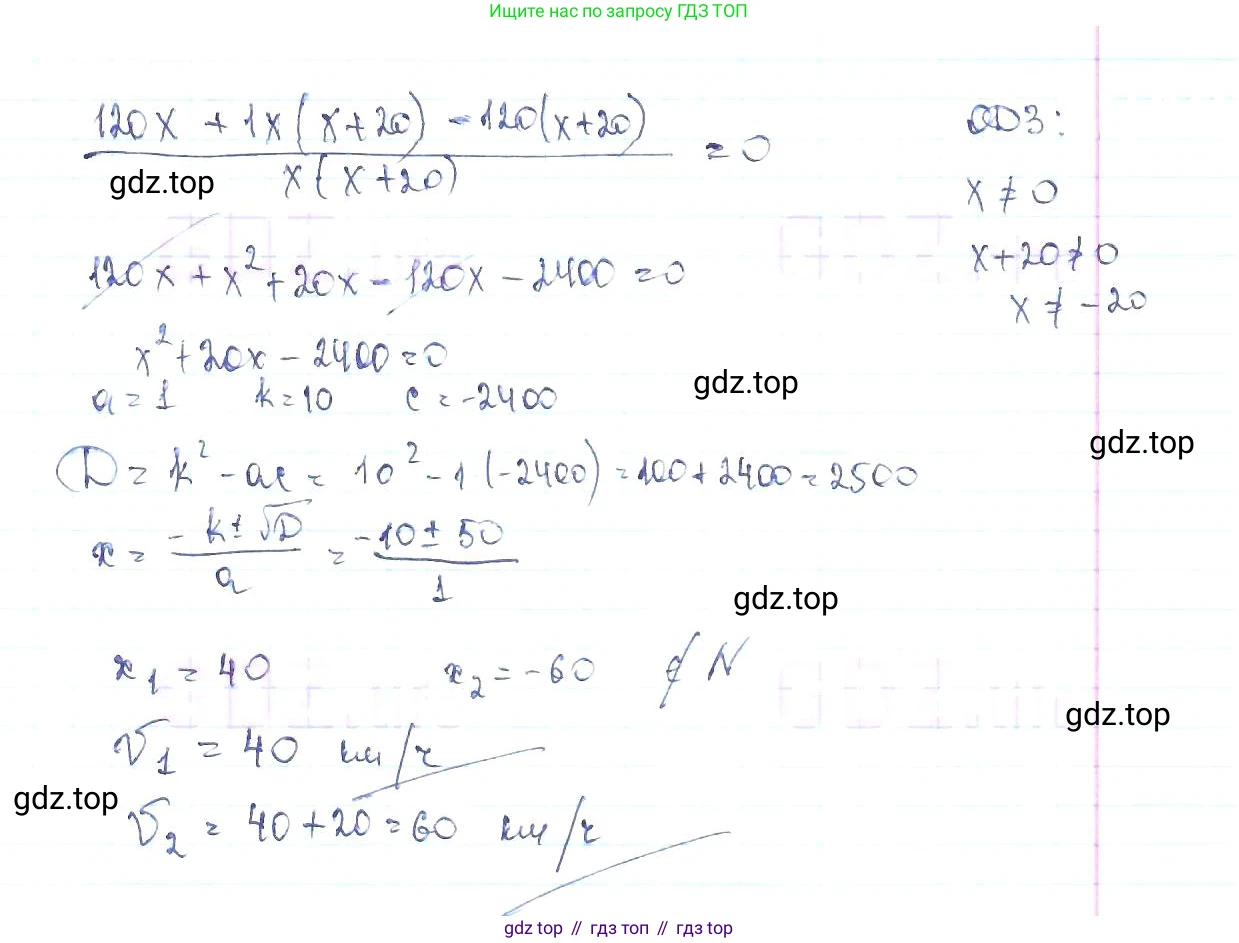 Ищите нас по запросу ГДЗ ТОП
120x + 1x(x+20) - 120(x+20) / x(x+20) = 0
ОДЗ:
gdz.top
x ≠ 0
120x + x² + 20x - 120x - 2400 = 0
x+20 ≠ 0
x ≠ -20
x² + 20x - 2400 = 0
gdz.top
a = 1 k = 10 c = -2400
gdz.top
D = k² - ac = 10² - 1(-2400) = 100 + 2400 = 2500
x = -k ± √D / a = -10 ± 50 / 1
gdz.top
x₁ = 40 x₂ = -60 ∉ N
gdz.top
V₁ = 40 км/ч
gdz.top
V₂ = 40 + 20 = 60 км/ч
gdz top // гдз топ // гдз top